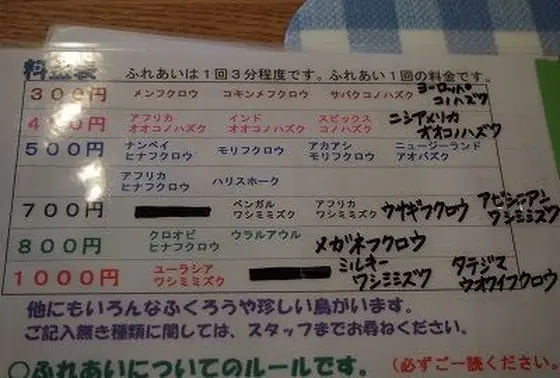 料金表 ふれあいは1回3分程度です。ふれあい1回の料金です。
300円 メンフクロウ コキンメフクロウ サバクコノハズク ヨーロッパコノハズク
400円 アフリカオオコノハズク インドオオコノハズク スピックスコノハズク ニシアメリカオオコノハズク
500円 ナンベイヒナフクロウ モリフクロウ アカアシモリフクロウ ニュージーランドアオバズク
アフリカヒナフクロウ ハリスホーク
700円 ベンガルワシミミズク アフリカワシミミズク ウサギフクロウ アビシニアンワシミミズク
800円 クロオビヒナフクロウ ウラルアウル メガネフクロウ
1000円 ユーラシアワシミミズク ミルキーワシミミズク タテジマウオクイフクロウ
他にもいろんなふくろうや珍しい鳥がいます。
ご記入無き種類に関しては、スタッフまでお尋ねください。
○ふれあいについてのルールです。(必ずご一読ください。